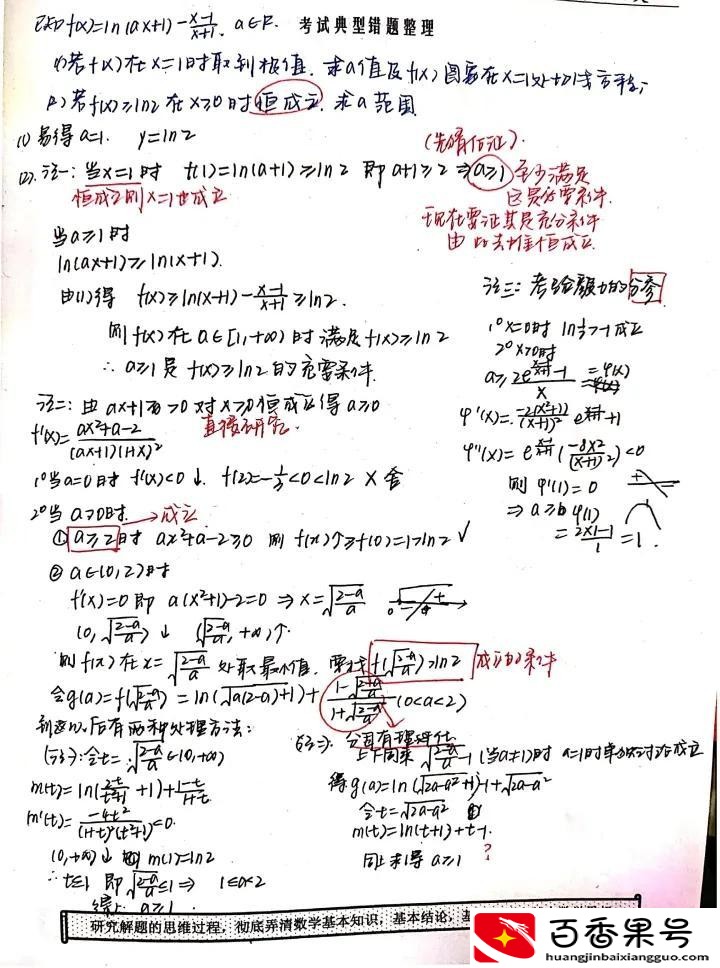 已知f(x)=ln(ax+1)-\frac{x-1}{x+1}, a∈R.
考试典型错题整理
(1)若f(x)在x=1时取到极值,求a值及f(x)图象在x=1处切线方程;
(2)若f(x)≥ln2在x≥0时恒成立,求a范围
(1)易得a=1. y=ln2
(先看后证).
(2). 法一:当x=1时 f(1)=ln(a+1)≥ln2 即a+1≥2⇒a≥1 至少满足
恒成立则x=1也成立
这是必要条件.
现在要证其是充分条件
由此去推恒成立.
当a≥1时
ln(ax+1)≥ln(x+1).
由(1)得 f(x)≥ln(x+1)-\frac{x-1}{x+1}≥ln2.
则f(x)在a∈[1,+∞)时满足f(x)≥ln2
∴a≥1是f(x)≥ln2的充要条件.
法三:分参
1°x=0时
成立
2°x>0时
a≥\frac{2e^{\frac{x-1}{x+1}}-1}{x}=φ(x)
φ''(x)=
<0
则φ'(1)=0
⇒a≥φ(1)
=\frac{2×1-1}{1}=1.
法二:由ax+1>0对x≥0恒成立得a≥0
直接研究.
f'(x)=\frac{ax²+a-2}{(ax+1)(1+x)²}
1°当a=0时 f'(x)<0↓. f(2)=-\frac{1}{3}<0<ln2 ×舍
2°当a>0时. →成立
①a≥2时 ax²+a-2≥0 则f(x)↑≥f(0)=1>ln2 √
②a∈(0,2)时
f'(x)=0即 a(x²+1)-2=0 ⇒x=\sqrt{\frac{2-a}{a}}
(0,\sqrt{\frac{2-a}{a}})↓ (\sqrt{\frac{2-a}{a}},+∞)↑.
则f(x)在x=\sqrt{\frac{2-a}{a}}处取最小值. 要找f(\sqrt{\frac{2-a}{a}})≥ln2 成立的条件
令g(a)=f(\sqrt{\frac{2-a}{a}})=ln(\sqrt{a(2-a)}+1)+\frac{1-\sqrt{\frac{2-a}{a}}}{1+\sqrt{\frac{2-a}{a}}}(0<a<2)
到这以后有两种处理方法:
(法1):令t=\sqrt{\frac{2-a}{a}}∈(0,+∞)
m(t)=ln(\frac{2t}{t²+1}+1)+\frac{1-t}{1+t}
m'(t)=\frac{-4t²}{(1+t)²(t²+1)}<0.
(0,+∞)↓ 则m(1)=ln2
∴t≤1 即\sqrt{\frac{2-a}{a}}≤1⇒ 1≤a<2
综上 a≥1
(法二): 分母有理化
上下同乘\sqrt{\frac{2-a}{a}}-1(当a≠1)时 a=1时单独讨论成立
得g(a)=ln(\sqrt{2a-a²}+1)-1+\sqrt{2a-a²}
令t=\sqrt{2a-a²}
m(t)=ln(t+1)+t-1.
同上求得a≥1 ?
研究解题的思维过程,彻底弄清数学基本知识,基本结论,
百香果号
huangjinbaixiangguo.com